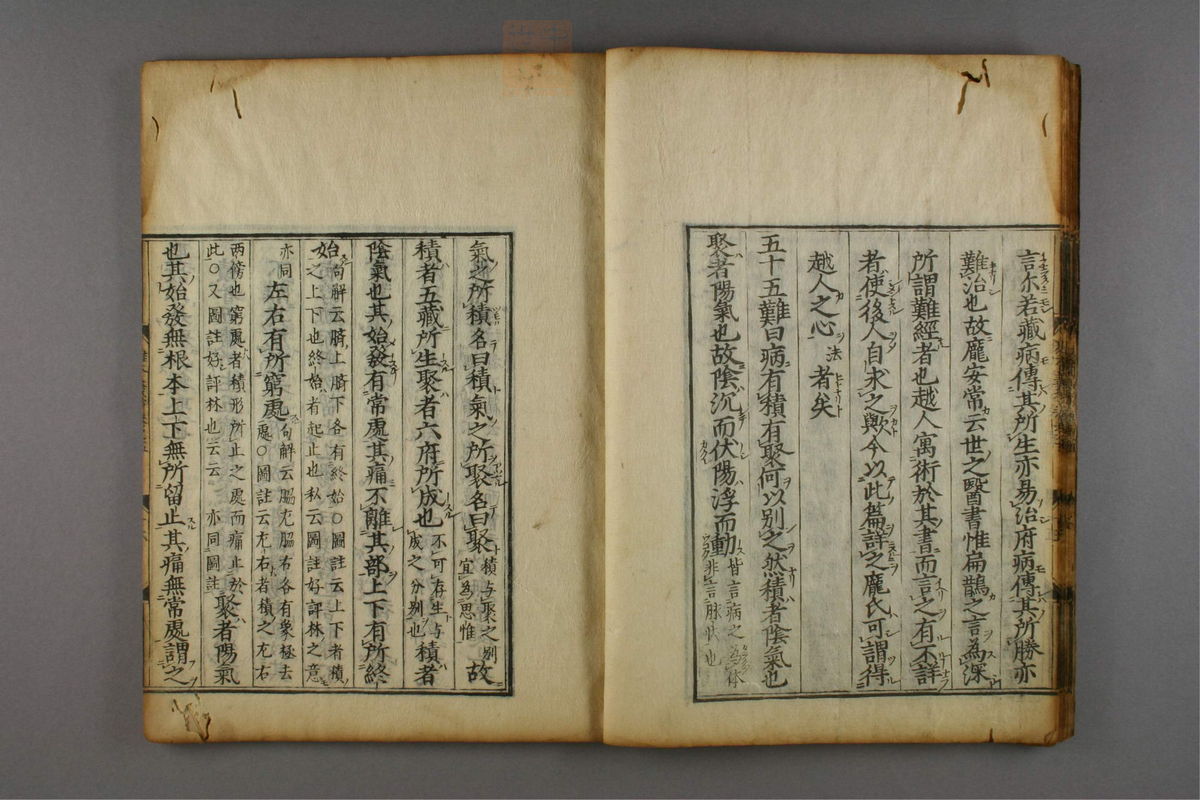 言尓若藏病傳其所生亦易治府病傳其所勝亦
難治也故龐安常云世之醫書惟扁鵲之言為深
所謂難經者也越人寓術於其書而言之有不詳
者使後人自求之歟今以此篇詳之龐氏可謂得
越人之心法者矣
五十五難曰病有積有聚何以別之然積者陰氣也
聚者陽氣也故陰沉而伏陽浮而動皆言病之為体
非言脉状也
氣之所積名曰積氣之所聚名曰聚積与聚之別
宜為思惟故
積者五藏所生聚者六府所成也不可存生与
成之分別也積者
陰氣也其始發有常處其痛不離其部上下有所終
始句解云臍上臍下各有終始○圖註云上下者積
之上下也終始者起止也私云圖註好評林之意
亦同左右有所窮處句解云脇左脇右各有
處○圖註云左右者積之左右
兩傍也窮處者積形所止之處而痛止於
此○又圖註好評林也云云亦同圖註聚者陽氣
也其始發無根本上下無所留止其痛無常處謂之